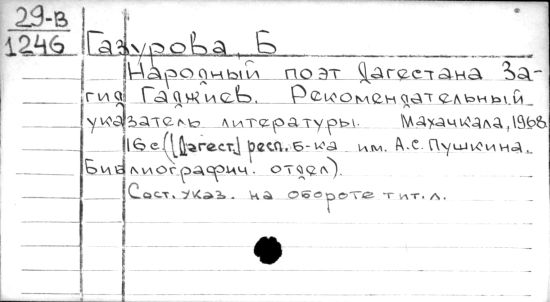 29-В
1246
Газурова, Б
Народный поэт Дагестана За-
гид Гаджиев. Рекомендательный
указатель литературы. Махачкала, 1968.
16 с ([Дагест.] респ. б-ка им. А.С. Пушкина.
Библиографич. отдел).
Сост. указ. на обороте тит. л.